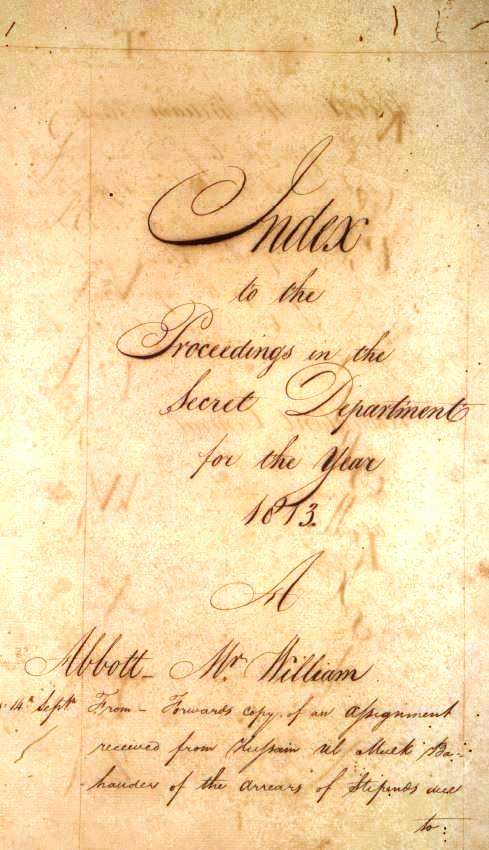 Index
to the
Proceedings in the
Secret Department
for the Year
1813.
A
Abbott Mr. William
14th Septr From - Forwards copy of an Assignment
received from Hussain ul Mulk Ba-
hauder of the arrears of Stipends due
to: